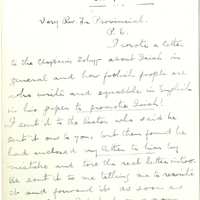 Very Rev. Fr Provincial.
P. C.
I wrote a letter
to the about Irish in
general and how foolish people are
who write and squabble in English
in his paper to promote Irish!
I sent it to the Rector who said he
sent it on to you. but then found he
had enclosed my letter to him by
mistake and tore the real letter in two.
He sent it to me telling me to rewrite
it and forward it as soon as